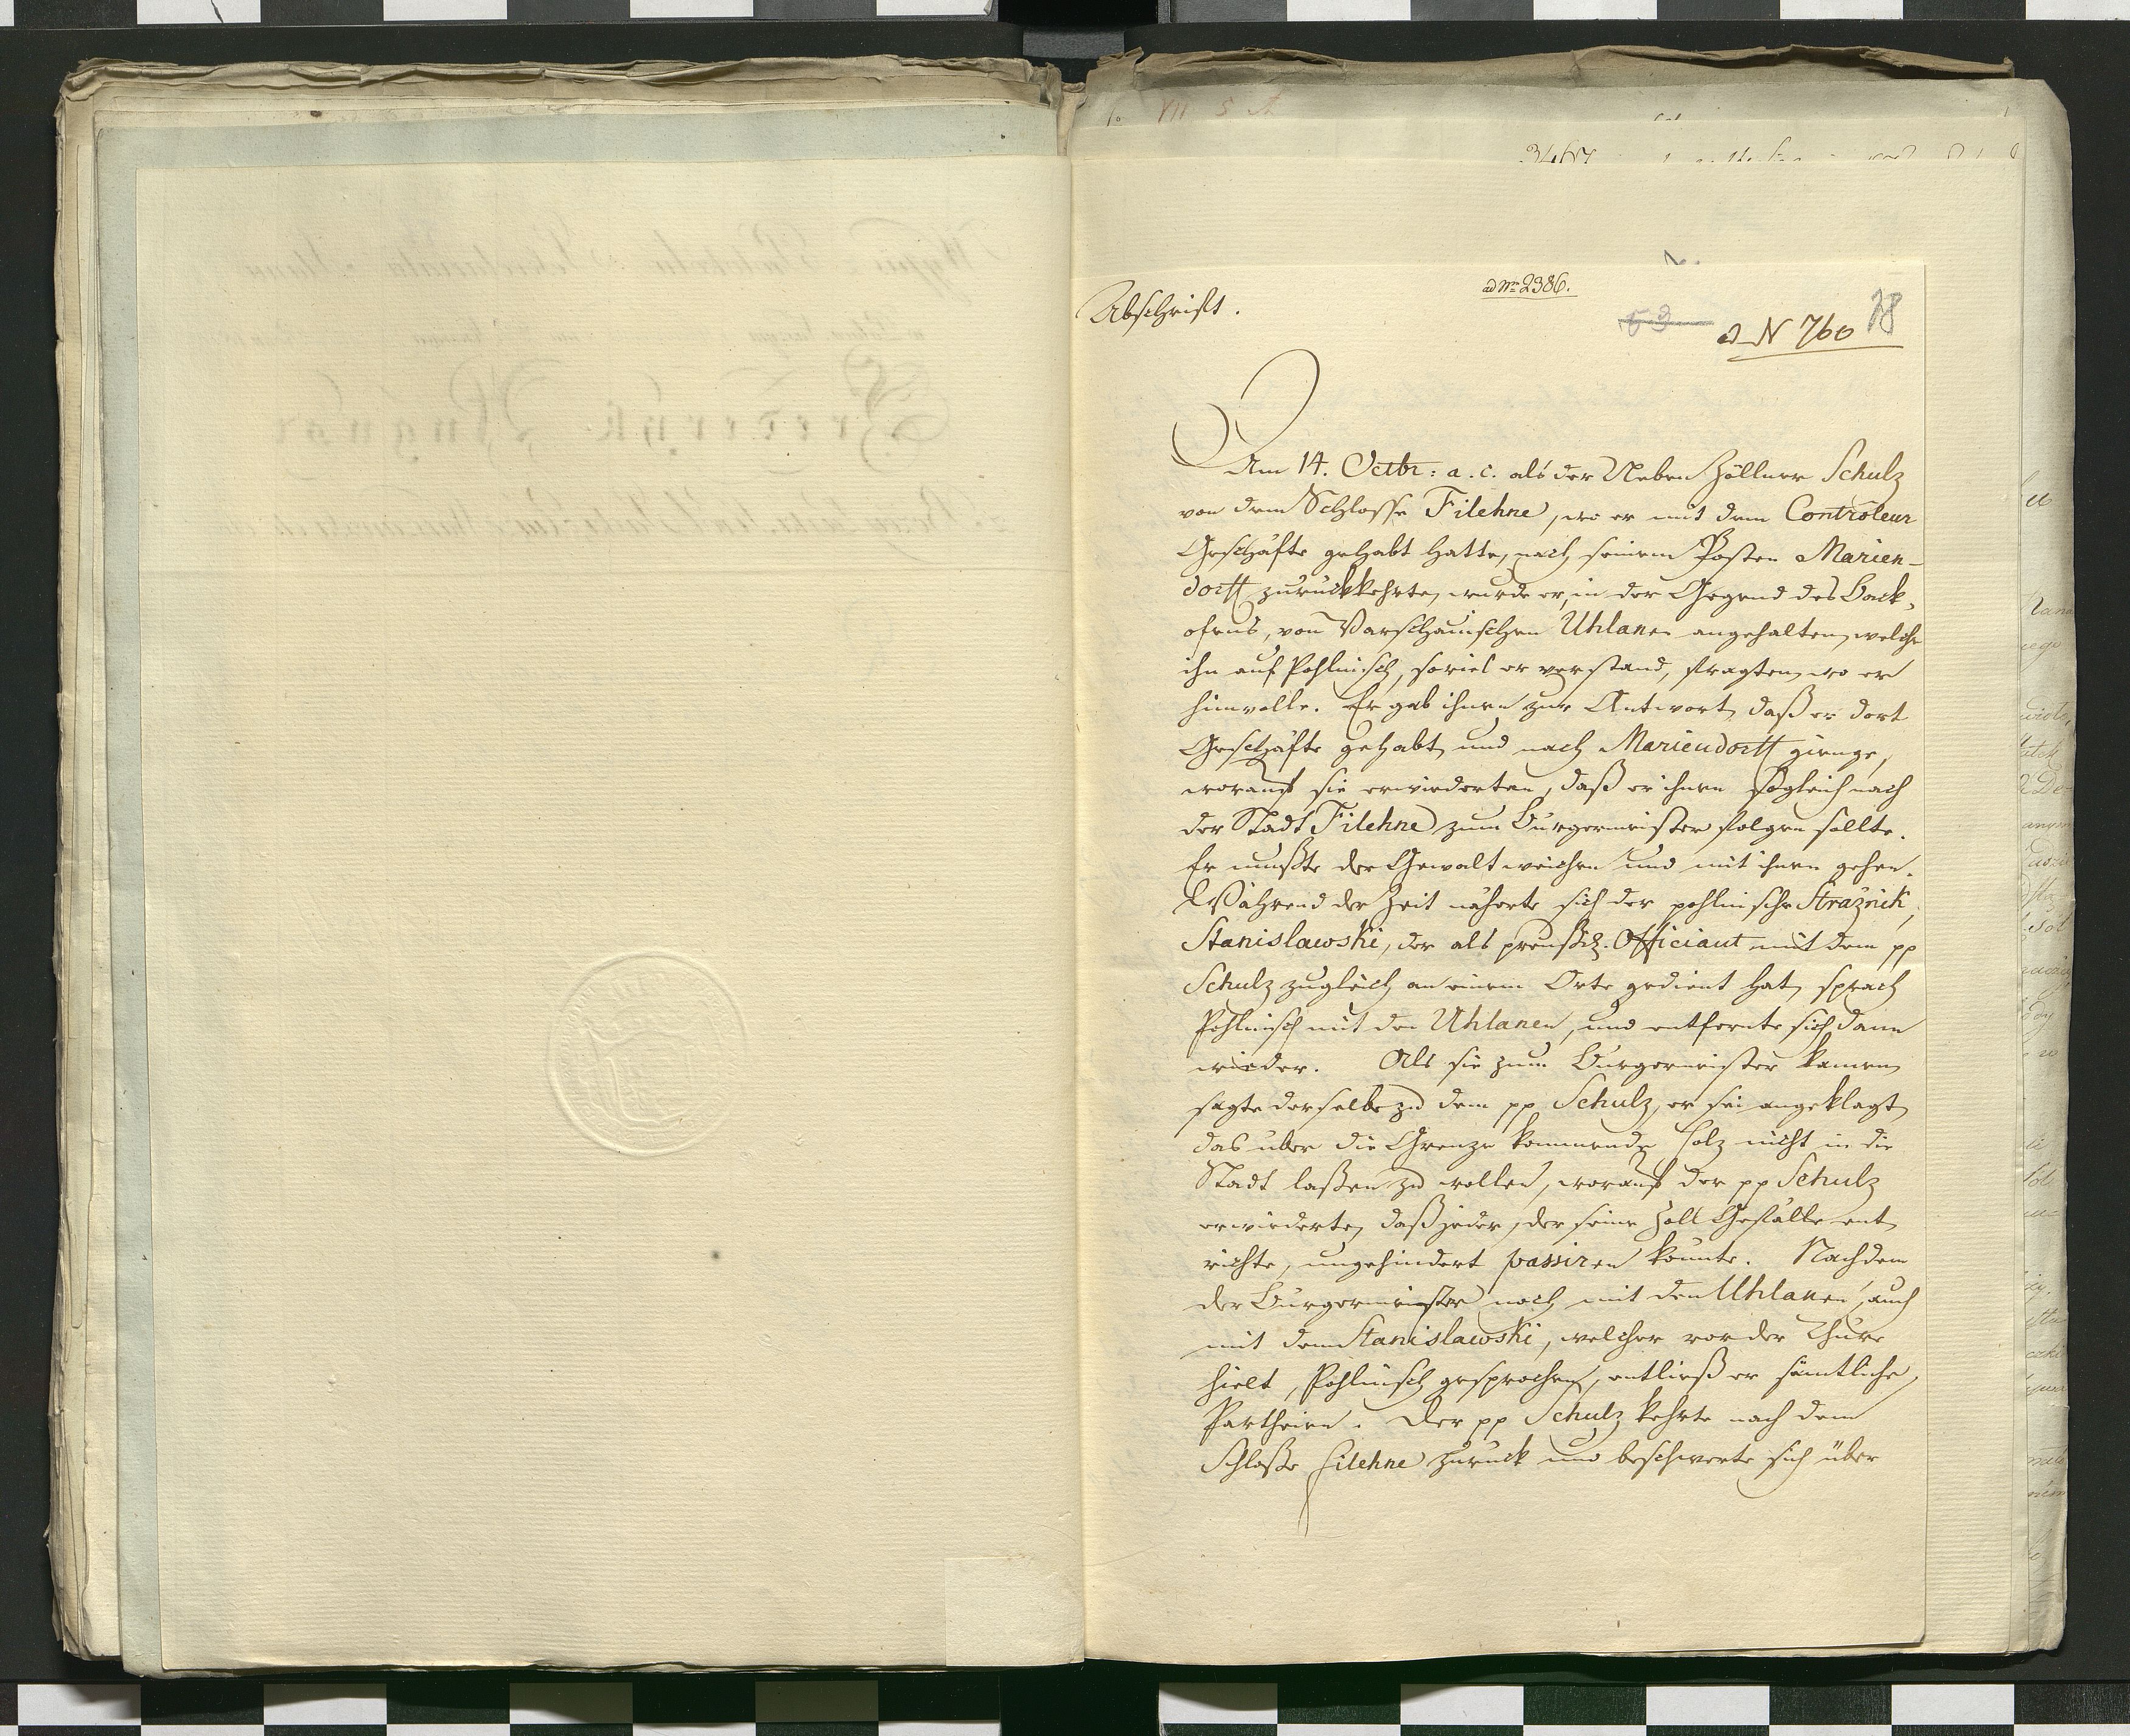 Abschrift.
ad Nro 2386.
53
ad N 760
78
Am 14. Octbr: a. c. als der Neben Zöllner Schulz
von dem Schlosse Filehne, wo er mit dem Controleur
Geschäfte gehabt hatte, nach seinem Posten Marien-
dorff zurückkehrte, wurde er, in der Gegend des Back-
ofens, von Warschauischen Uhlanen angehalten, welche
ihn auf Pohlnisch, soviel er verstand, fragten, wo er
hinwolle. Er gab ihnen zur Antwort, daß er dort
Geschäfte gehabt, und nach Mariendorff gienge,
worauf sie erwiederten, daß er ihnen sogleich nach
der Stadt Filehne zum Burgermeister folgen sollte.
Er mußte der Gewalt weichen und mit ihnen gehen.
Während der Zeit näherte sich der pohlnische Straznik,
Stanislawski, der als preußisch. Officiant mit dem pp
Schulz zugleich an einem Orte gedient hat, sprach
Pohlnisch mit den Uhlanen, und entfernte sich dann
wieder. Als sie zum Burgermeister kamen,
sagte derselbe zu dem pp Schulz, er sei angeklagt,
das über die Grenze kommende Holz nicht in die
Stadt laßen zu wollen, worauf der pp Schulz
erwiederte, daß jeder, der seine Zoll Gefälle ent-
richte, ungehindert passiren könnte. Nachdem
der Burgermeister noch mit den Uhlanen, auch
mit dem Stanislawski, welcher vor der Thüre
hielt, Pohlnisch gesprochen, entließ er sämtliche
Partheien. Der pp Schulz kehrte nach dem
Schloße Filehne zurück und beschwerte sich über